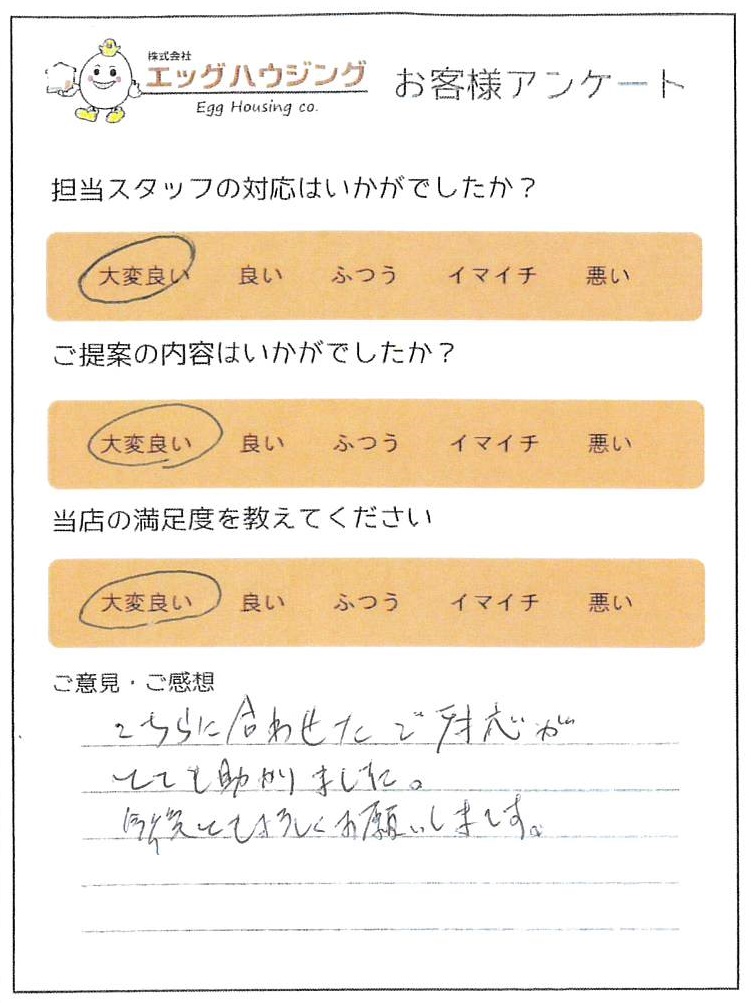 株式会社
エッグハウジング
Egg Housing co.
お客様アンケート
担当スタッフの対応はいかがでしたか？
大変良い 良い ふつう イマイチ 悪い
ご提案の内容はいかがでしたか？
大変良い 良い ふつう イマイチ 悪い
当店の満足度を教えてください
大変良い 良い ふつう イマイチ 悪い
ご意見・ご感想
こちらに合わせたご対応が
とても助かりました。
今後ともよろしくお願いします。